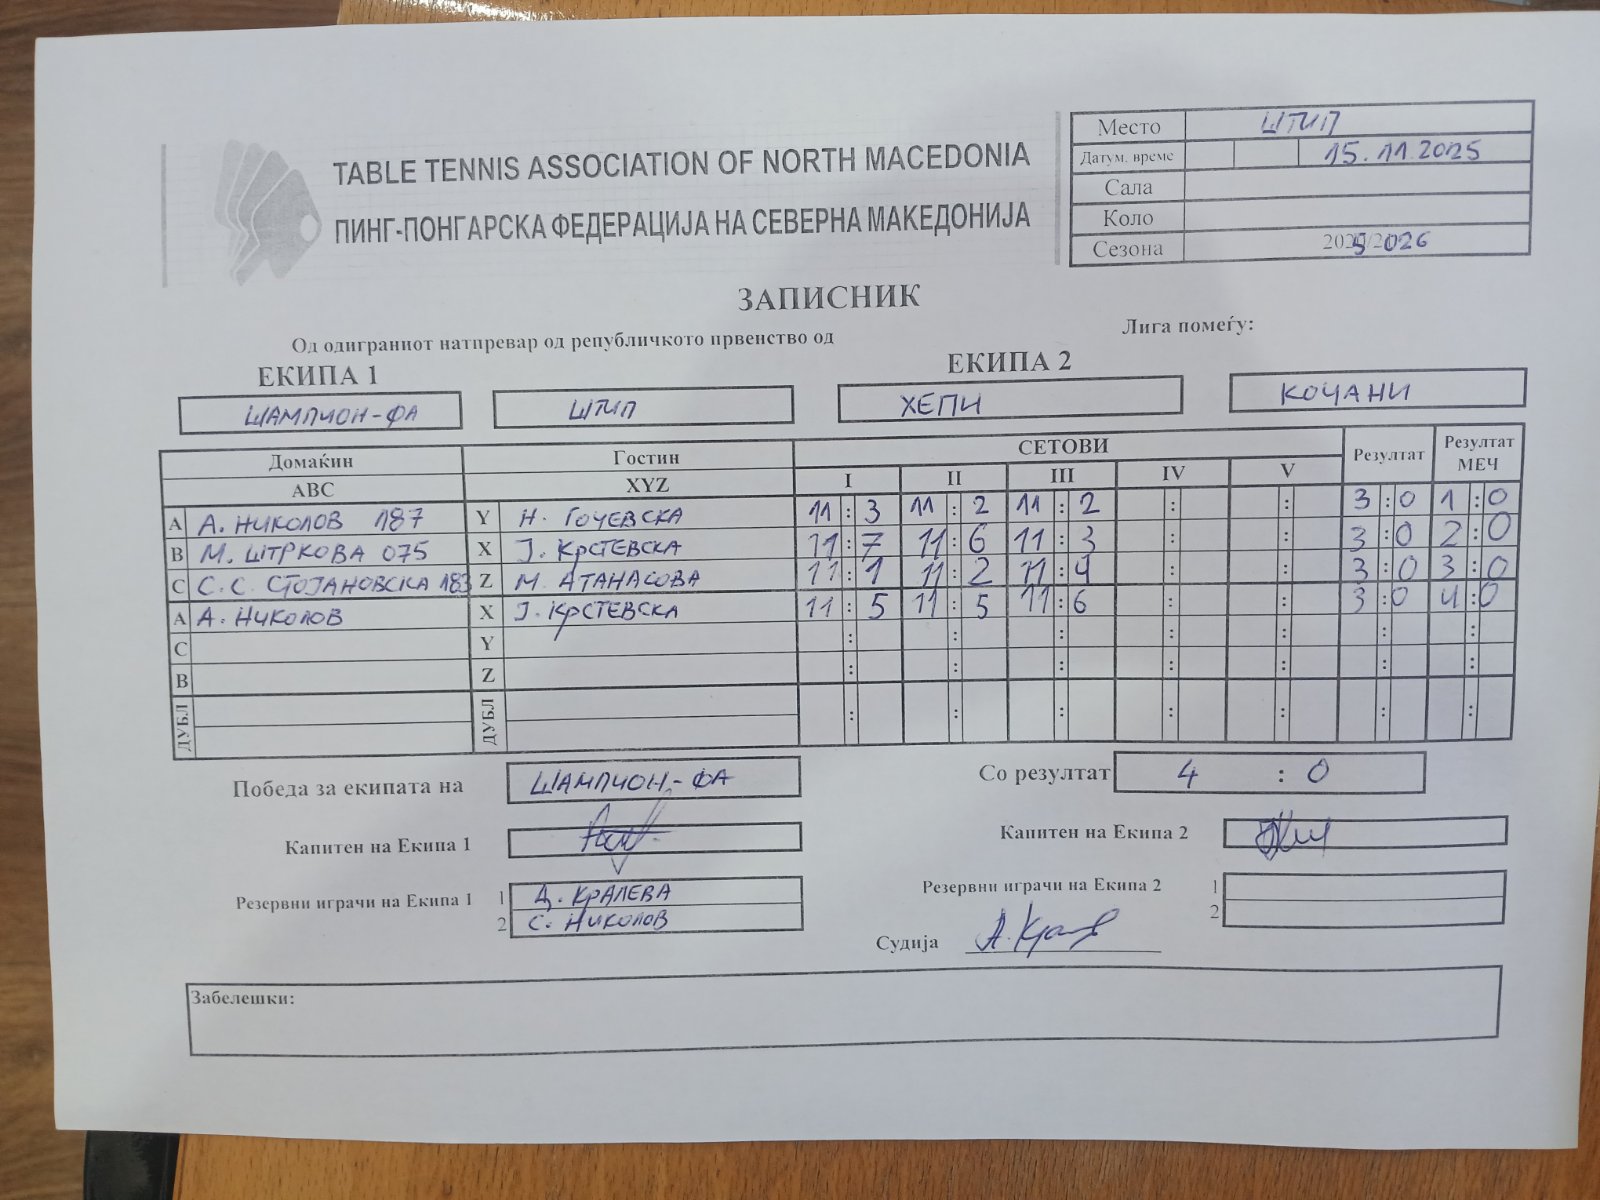 TABLE TENNIS ASSOCIATION OF NORTH MACEDONIA
ПИНГ-ПОНГАРСКА ФЕДЕРАЦИЈА НА СЕВЕРНА МАКЕДОНИЈА
Место ШТИП
Датум. време 15.11.2025
Сала
Коло
Сезона 2025/2026
ЗАПИСНИК
Од одиграниот натпревар од републичкото првенство од Лига помеѓу:
ЕКИПА 1 ЕКИПА 2
ШАМПИОН-ФА ШТИП ХЕПИ КОЧАНИ
Домаќин Гостин СЕТОВИ Резултат Резултат МЕЧ
ABC XYZ I II III IV V
A А. НИКОЛОВ 187 Y Н. ГОЧЕВСКА 11 : 3 11 : 2 11 : 2 : : 3 : 0 1 : 0
B М. ШТРКОВА 075 X Ј. КРСТЕВСКА 11 : 7 11 : 6 11 : 3 : : 3 : 0 2 : 0
C С.С. СТОЈАНОВСКА 183 Z М. АТАНАСОВА 11 : 1 11 : 2 11 : 4 : : 3 : 0 3 : 0
A А. НИКОЛОВ X Ј. КРСТЕВСКА 11 : 5 11 : 5 11 : 6 : : 3 : 0 4 : 0
C Y : : : : : : :
B Z : : : : : : :
ДУБЛ ДУБЛ : : : : : : :
Победа за екипата на ШАМПИОН-ФА Со резултат 4 : 0
Капитен на Екипа 1 Капитен на Екипа 2
Резервни играчи на Екипа 1 1 Д. КРАЛЕВА Резервни играчи на Екипа 2 1
2 С. НИКОЛОВ 2
Судија
Забелешки: